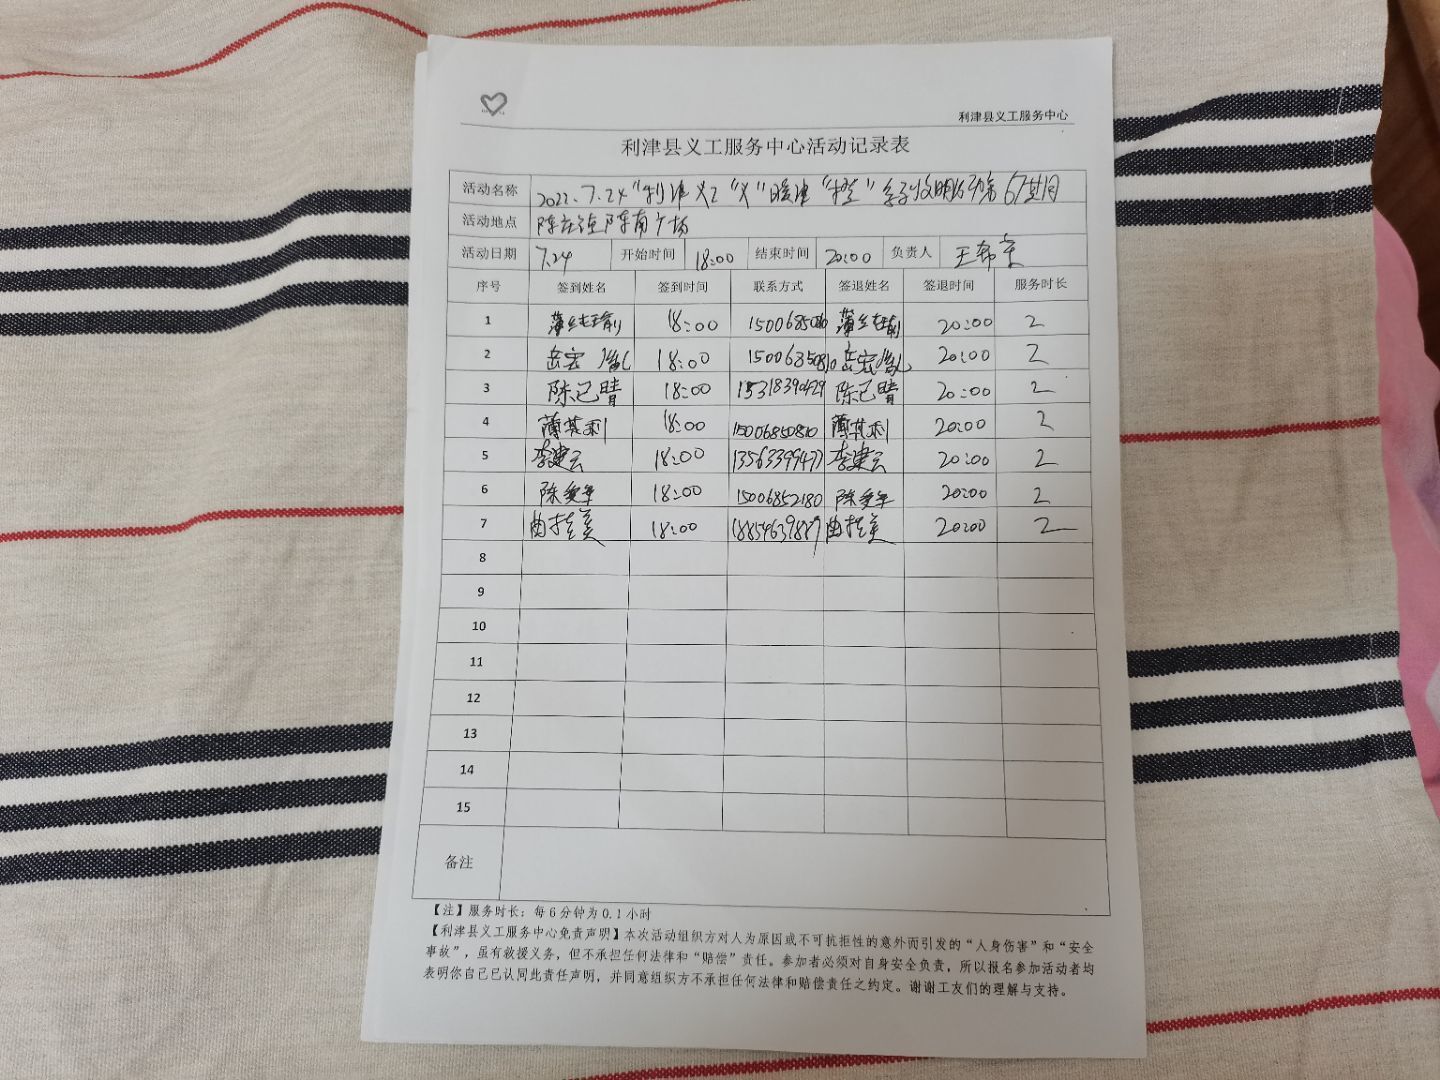 利津县义工服务中心
利津县义工服务中心活动记录表
活动名称 2022.7.24"利津义工"义"暖津"橙"
活动地点 陈庄镇陈南广场
活动日期 7.24 开始时间 18:00 结束时间 20:00 负责人 王希
序号 签到姓名 签到时间 联系方式 签退姓名 签退时间 服务时长
1 18:00 20:00 2
2 岳宏 18:00 岳宏 20:00 2
3 陈己晴 18:00 15318390429 陈己晴 20:00 2
4 薄其利 18:00 15006850810 薄其利 20:00 2
5 李建云 18:00 13563399477 李建云 20:00 2
6 陈爱华 18:00 15006852180 陈爱华 20:00 2
7 曲桂美 18:00 曲桂美 20:00 2
8
9
10
11
12
13
14
15
备注
【注】服务时长：每6分钟为0.1小时
【利津县义工服务中心免责声明】本次活动组织方对人为原因或不可抗拒性的意外而引发的“人身伤害”和“安全
事故”，虽有救援义务，但不承担任何法律和“赔偿”责任。参加者必须对自身安全负责，所以报名参加活动者均
表明你自己已认同此责任声明，并同意组织方不承担任何法律和赔偿责任之约定。谢谢工友们的理解与支持。